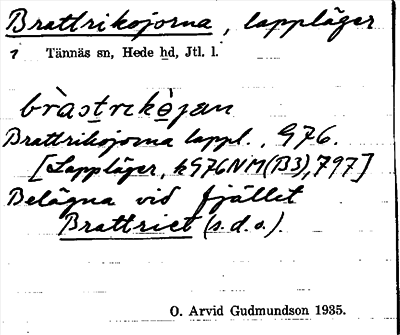 Brattrikojorna, lappläger
7 Tännäs sn, Hede hd, Jtl. l.
bràstrikö̀jan
Brattrikojorna lappl., G76.
[Lappläger, kG76NM(B3), 797]
Belägna vid fjället
Brattriet (s.d.o.).
O. Arvid Gudmundson 1935.